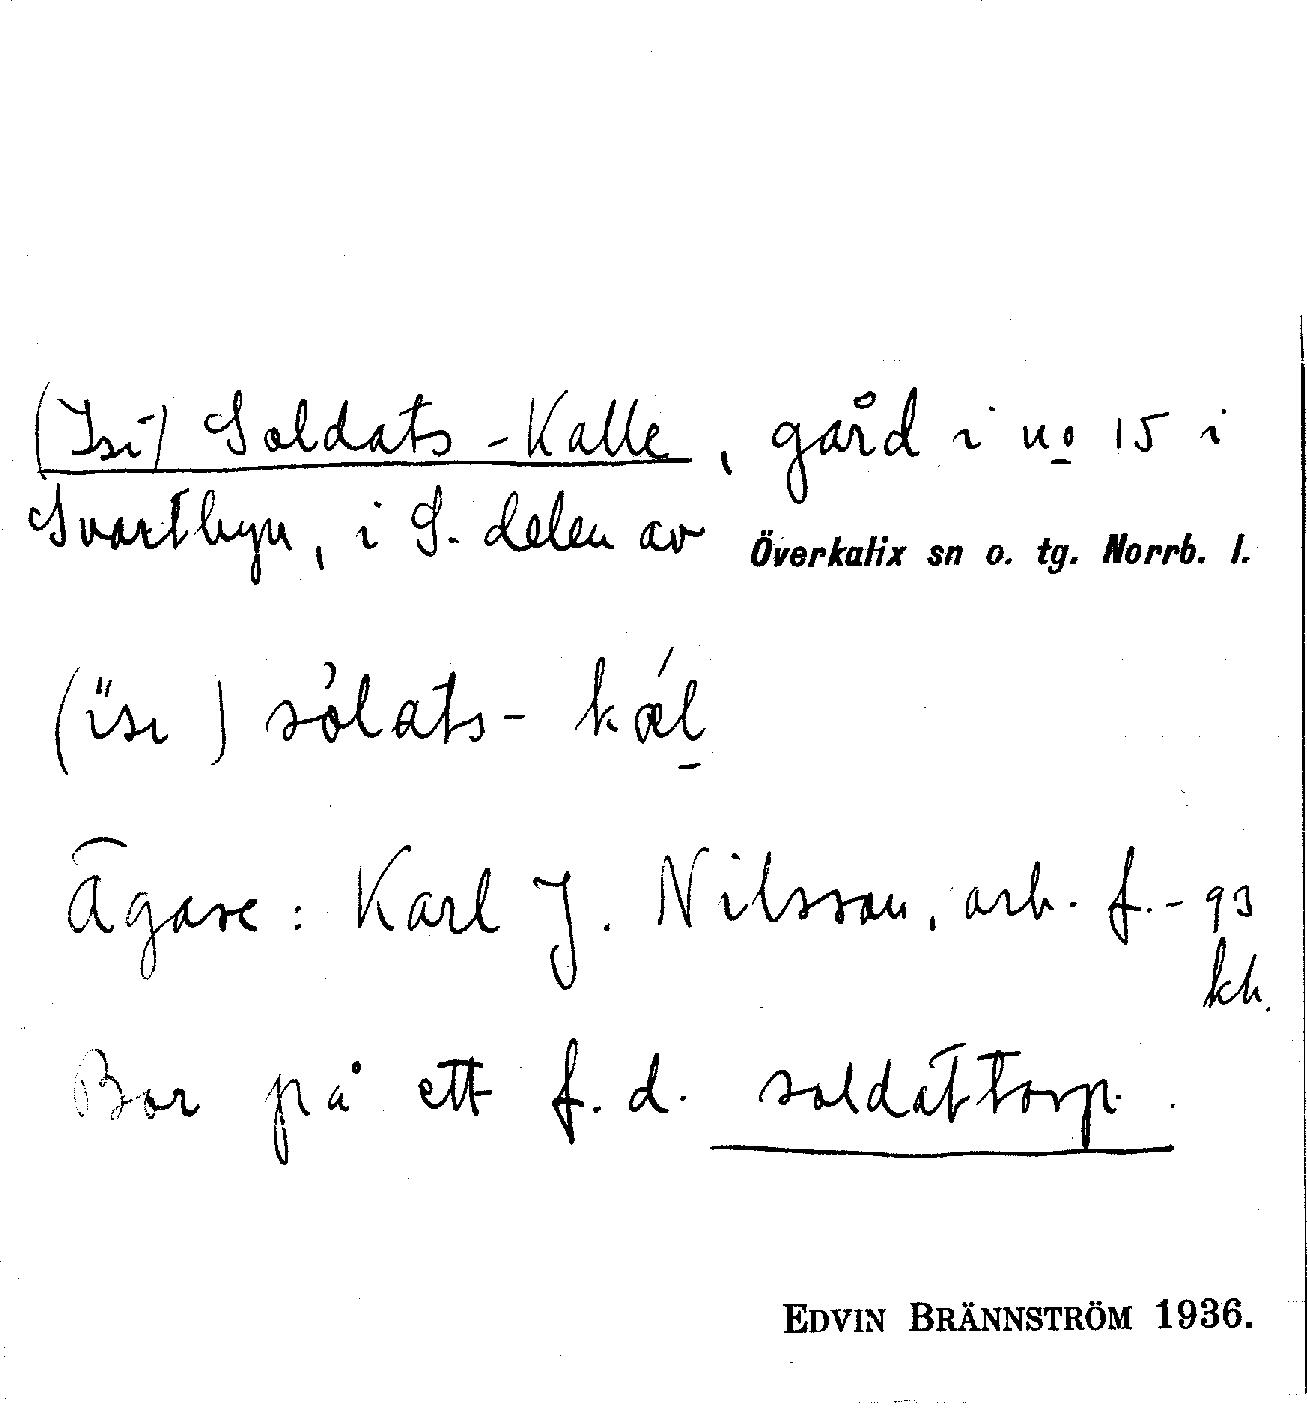 (Isi) Soldats-Kalle, gård i no 15 i
Svartbyn, i S. delen av Överkalix sn o. tg. Norrb. l.
(ïsı) sòlats- kǽl
Ägare: Karl J. Nilsson, arb. f. -93
kh.
Bor på ett f.d. soldattorp.
EDVIN BRÄNNSTRÖM 1936.